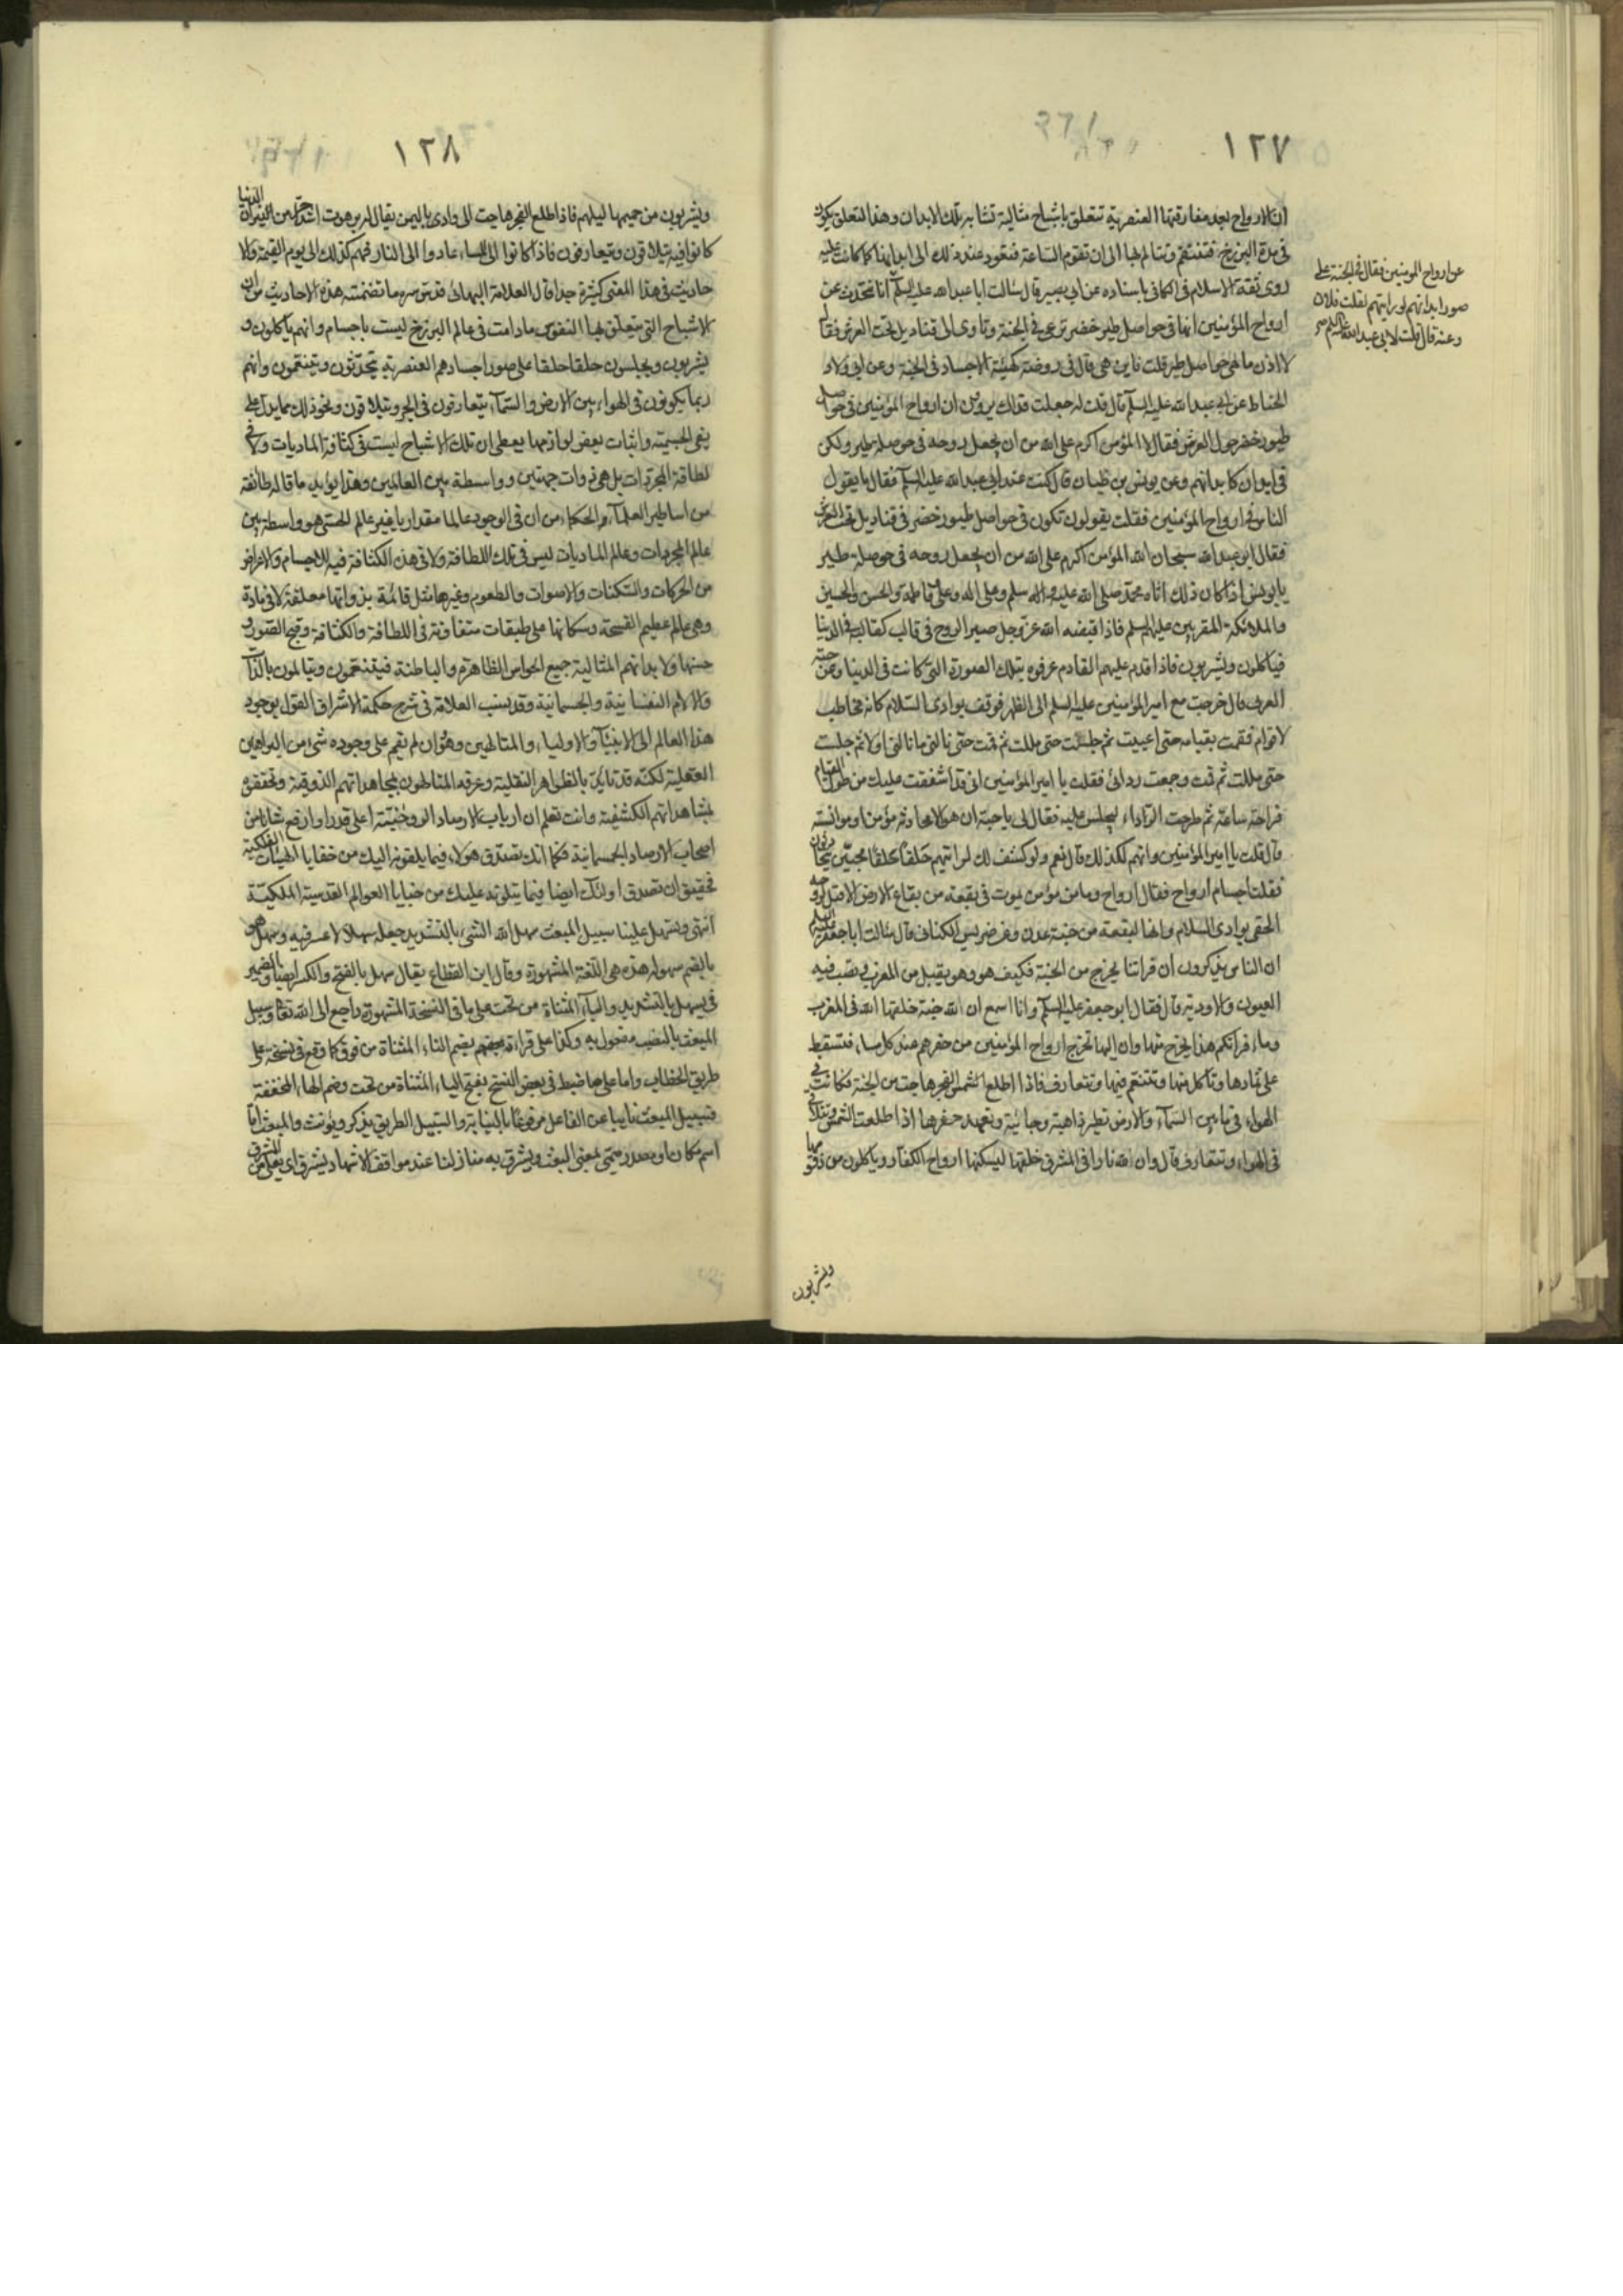 ١٢٧
ان الارواح بعد مفارقتها العنصرية تتعلق باشباح مثالية تشابه تلك الابدان وهذا التعلق يكون
فى مدة البرزخ فتتنعم وتتالم بها الى ان تقوم الساعة فتعود عند ذلك الى ابدانها كما كانت عليه
روى ثقة الاسلام فى الكافى باسناده عن ابى بصير قال سالت ابا عبد الله عليه السلم انا نتحدث عن
ارواح المؤمنين انها فى حواصل طير خضر ترعى فى الجنة وتاوى الى قناديل تحت العرش فقال
لا اذن ما هى حواصل طير قلت فاين هى قال فى روضة كهيئة الاجساد فى الجنة وعن ابى ولاد
الحناط عن ابى عبد الله عليه السلم قال قلت له جعلت فداك يروون ان ارواح المؤمنين فى حواصل
طيور خضر حول العرش فقال لا المؤمن اكرم على الله من ان يجعل روحه فى حوصلة طير ولكن
فى ابدان كابدانهم وعن يونس بن ظبيان قال كنت عند ابى عبد الله عليه السلم فقال ما يقول
الناس فى ارواح المؤمنين فقلت يقولون تكون فى حواصل طيور خضر فى قناديل تحت العرش
فقال ابو عبد الله سبحان الله المؤمن اكرم على الله من ان يجعل روحه فى حوصلة طير
يا يونس اذا كان ذلك اتاه محمد صلى الله عليه واله سلم وعلى وفاطمة والحسن والحسين
والملائكة المقربين عليهم السلم فاذا قبضه الله عز وجل صير الروح فى قالب كقالبه فى الدنيا
فياكلون ويشربون فاذا قدم عليهم القادم عرفوه بتلك الصورة التى كانت فى الدنيا وعن حبة
العرنى قال خرجت مع امير المؤمنين عليه السلم الى الظهر فوقف بوادى السلام كانه مخاطب
لاقوام فقمت بقيامه حتى اعييت ثم جلست حتى مللت ثم قمت حتى نالنى ما نالنى اولا ثم جلست
حتى مللت ثم قمت وجمعت ردائى فقلت يا امير المؤمنين انى قد اشفقت عليك من طول القيام
فراحة ساعة ثم طرحت الرداء ليجلس عليه فقال لى يا حبة ان هو الا محادثة مؤمن او موانسته
قال قلت يا امير المؤمنين وانهم لكذلك قال نعم ولو كشف لك لرايتهم حلقا حلقا محبتين يتحادثون
فقلت اجسام ام ارواح فقال ارواح وما من مؤمن يموت فى بقعة من بقاع الارض الا قيل لروحه
الحقى بوادى السلام وانها لبقعة من جنة عدن وعن ضريس الكناسى قال سالت ابا جعفر عليه السلم
ان الناس يذكرون ان فراتنا يخرج من الجنة فكيف هو وهو يقبل من المغرب وتصب فيه
العيون والاودية قال فقال ابو جعفر عليه السلم وانا اسمع ان لله جنة خلقها الله فى المغرب
وماء فراتكم هذا يخرج منها وان اليها تخرج ارواح المؤمنين من حفرهم عند كل مساء فتسقط
على ثمارها وتاكل منها وتتنعم فيها وتتعارف فاذا اطلع الفجر هاجت من الجنة فكانت فى
الهواء فى ما بين السماء والارض تطير ذاهبة وجائية وتعهد حفرها اذا طلعت الشمس وتتلاقى
فى الهواء وتتعارف قال وان لله نارا فى المشرق خلقها ليسكنها ارواح الكفار وياكلون من زقومها
ويشربون
عن ارواح المومنين فقال فى الجنة على
صور ابدانهم لو رايتهم لقلت فلان
وعنه قال قلت لابى عبد الله عليه السلم
١٢٨
ويشربون من حميمها ليلهم فاذا طلع الفجر هاجت الى وادى باليمن يقال له برهوت اشد حرا من نيران الدنيا
كانوا فيه يتلاقون ويتعارفون فاذا كانوا الى المساء عادوا الى النار فهم كذلك الى يوم القيمة والا
حاديث فى هذا المعنى كثيرة جدا قال العلامة البهائى قدس سره ما تضمنته هذه الاحاديث من ان
الاشباح التى يتعلق بها النفوس ما دامت فى عالم البرزخ ليست باجسام وانهم ياكلون و
يشربون ويجلسون حلقا حلقا على صور اجسادهم العنصرية يتحدثون ويتنعمون وانهم
ربما يكونون فى الهواء بين الارض والسماء يتعارفون فى الجو ويتلاقون ونحو ذلك مما يدل على
نفى الجسمية واثبات بعض لوازمها يعطى ان تلك الاشباح ليست فى كثافة الماديات ولا فى
لطافة المجردات بل هى ذوات جهتين وواسطة بين العالمين وهذا يؤيد ما قاله طائفة
من اساطير العلماء والحكماء من ان فى الوجود عالما مقداريا غير عالم الحسى هو واسطة بين
عالم المجردات وعالم الماديات ليس فى تلك اللطافة ولا فى هذه الكثافة فيه للاجسام والاعراض
من الحركات والسكنات والاصوات والطعوم وغيرها مثل قائمة بذواتها معلقة لا فى مادة
وهى عالم عظيم الفسحة وسكانها على طبقات متفاوتة فى اللطافة والكثافة وقبح الصور و
حسنها ولابدانهم المثالية جميع الحواس الظاهرة والباطنة فيتنعمون ويتالمون باللذات
والالام النفسانية والجسمانية وقد نسب العلامة فى شرح حكمة الاشراق القول بوجود
هذا العالم الى الانبياء والاولياء والمتالهين وهو ان لم يقم على وجوده شئ من البراهين
العقلية لكنه قد تايد بالظواهر النقلية وعرفه المتالهون بمجاهداتهم الذوقية وتحققوه
بمشاهداتهم الكشفية وانت تعلم ان ارباب الارصاد الروحانية اعلى قدرا وارفع شانا من
اصحاب الارصاد الجسمانية فكما انك تصدق هولاء فيما يلقونه اليك من خفايا الهيئات الفلكية
فحقيق ان تصدق اولئك ايضا فيما يتلونه عليك من خبايا العوالم القدسية الملكية
انتهى ويسهل علينا سبيل المبعث سهل الله الشئ بالتشديد جعله سهلا لا عسر فيه وسهل هو
بالضم سهولة هذه هى اللغة المشهورة وقال ابن القطاع يقال سهل بالفتح والكسر ايضا والضمير
فى يسهل بالتشديد والياء المثناة من تحت على ما فى النسخة المشهورة راجع الى الله تعالى وسبيل
المبعث بالنصب مفعول به وكذا على قراءة بعضهم بضم التاء المثناة من فوق كما وقع فى نسخة على
طريق الخطاب واما على ما ضبط فى بعض النسخ بفتح الياء المثناة من تحت وضم الهاء المخففة
فسبيل المبعث نايبا عن الفاعل مرفوعا بالنيابة والسبيل الطريق يذكر ويؤنث والمبعث اما
اسم مكان او مصدر ميمى بمعنى البعث ويشرق به منازلنا عند مواقف الاشهاد يشرق اى